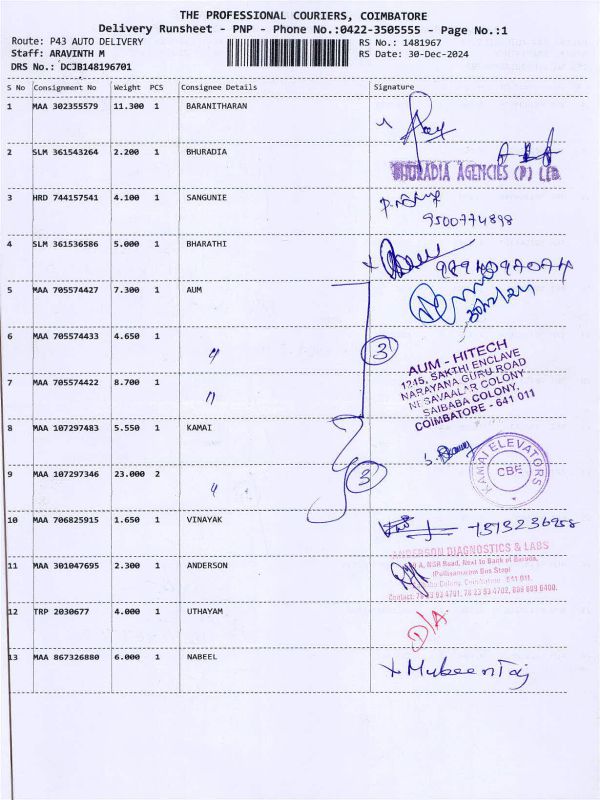 THE PROFESSIONAL COURIERS, COIMBATORE
Delivery Runsheet - PNP - Phone No.:0422-3505555 - Page No.:1
Route: P43 AUTO DELIVERY RS No.: 1481967
Staff: ARAVINTH M RS Date: 30-Dec-2024
DRS No.: DCJB148196701
S No Consignment No Weight PCS Consignee Details Signature
1 MAA 302355579 11.300 1 BARANITHARAN
2 SLM 361543264 2.200 1 BHURADIA
BHURADIA AGENCIES (P) LTD.
3 HRD 744157541 4.100 1 SANGUNIE
9500774898
4 SLM 361536586 5.000 1 BHARATHI
5 MAA 705574427 7.300 1 AUM
6 MAA 705574433 4.650 1 〃
3
7 MAA 705574422 8.700 1 〃
AUM - HITECH
1245, SAKTHI ENCLAVE
NARAYANA GURU ROAD
SAIBABA COLONY,
COIMBATORE - 641 011
8 MAA 107297483 5.550 1 KAMAI
KAMAI ELEVATORS
CBE
9 MAA 107297346 23.000 2 〃
3
10 MAA 706825915 1.650 1 VINAYAK
ANDERSON DIAGNOSTICS & LABS
A, NSR Road, Next to Bank of Baroda,
11 MAA 301047695 2.300 1 ANDERSON
Colony, Coimbatore - 641 011.
12 TRP 2030677 4.000 1 UTHAYAM
D/A
13 MAA 867326880 6.000 1 NABEEL
x Mubeen Taj